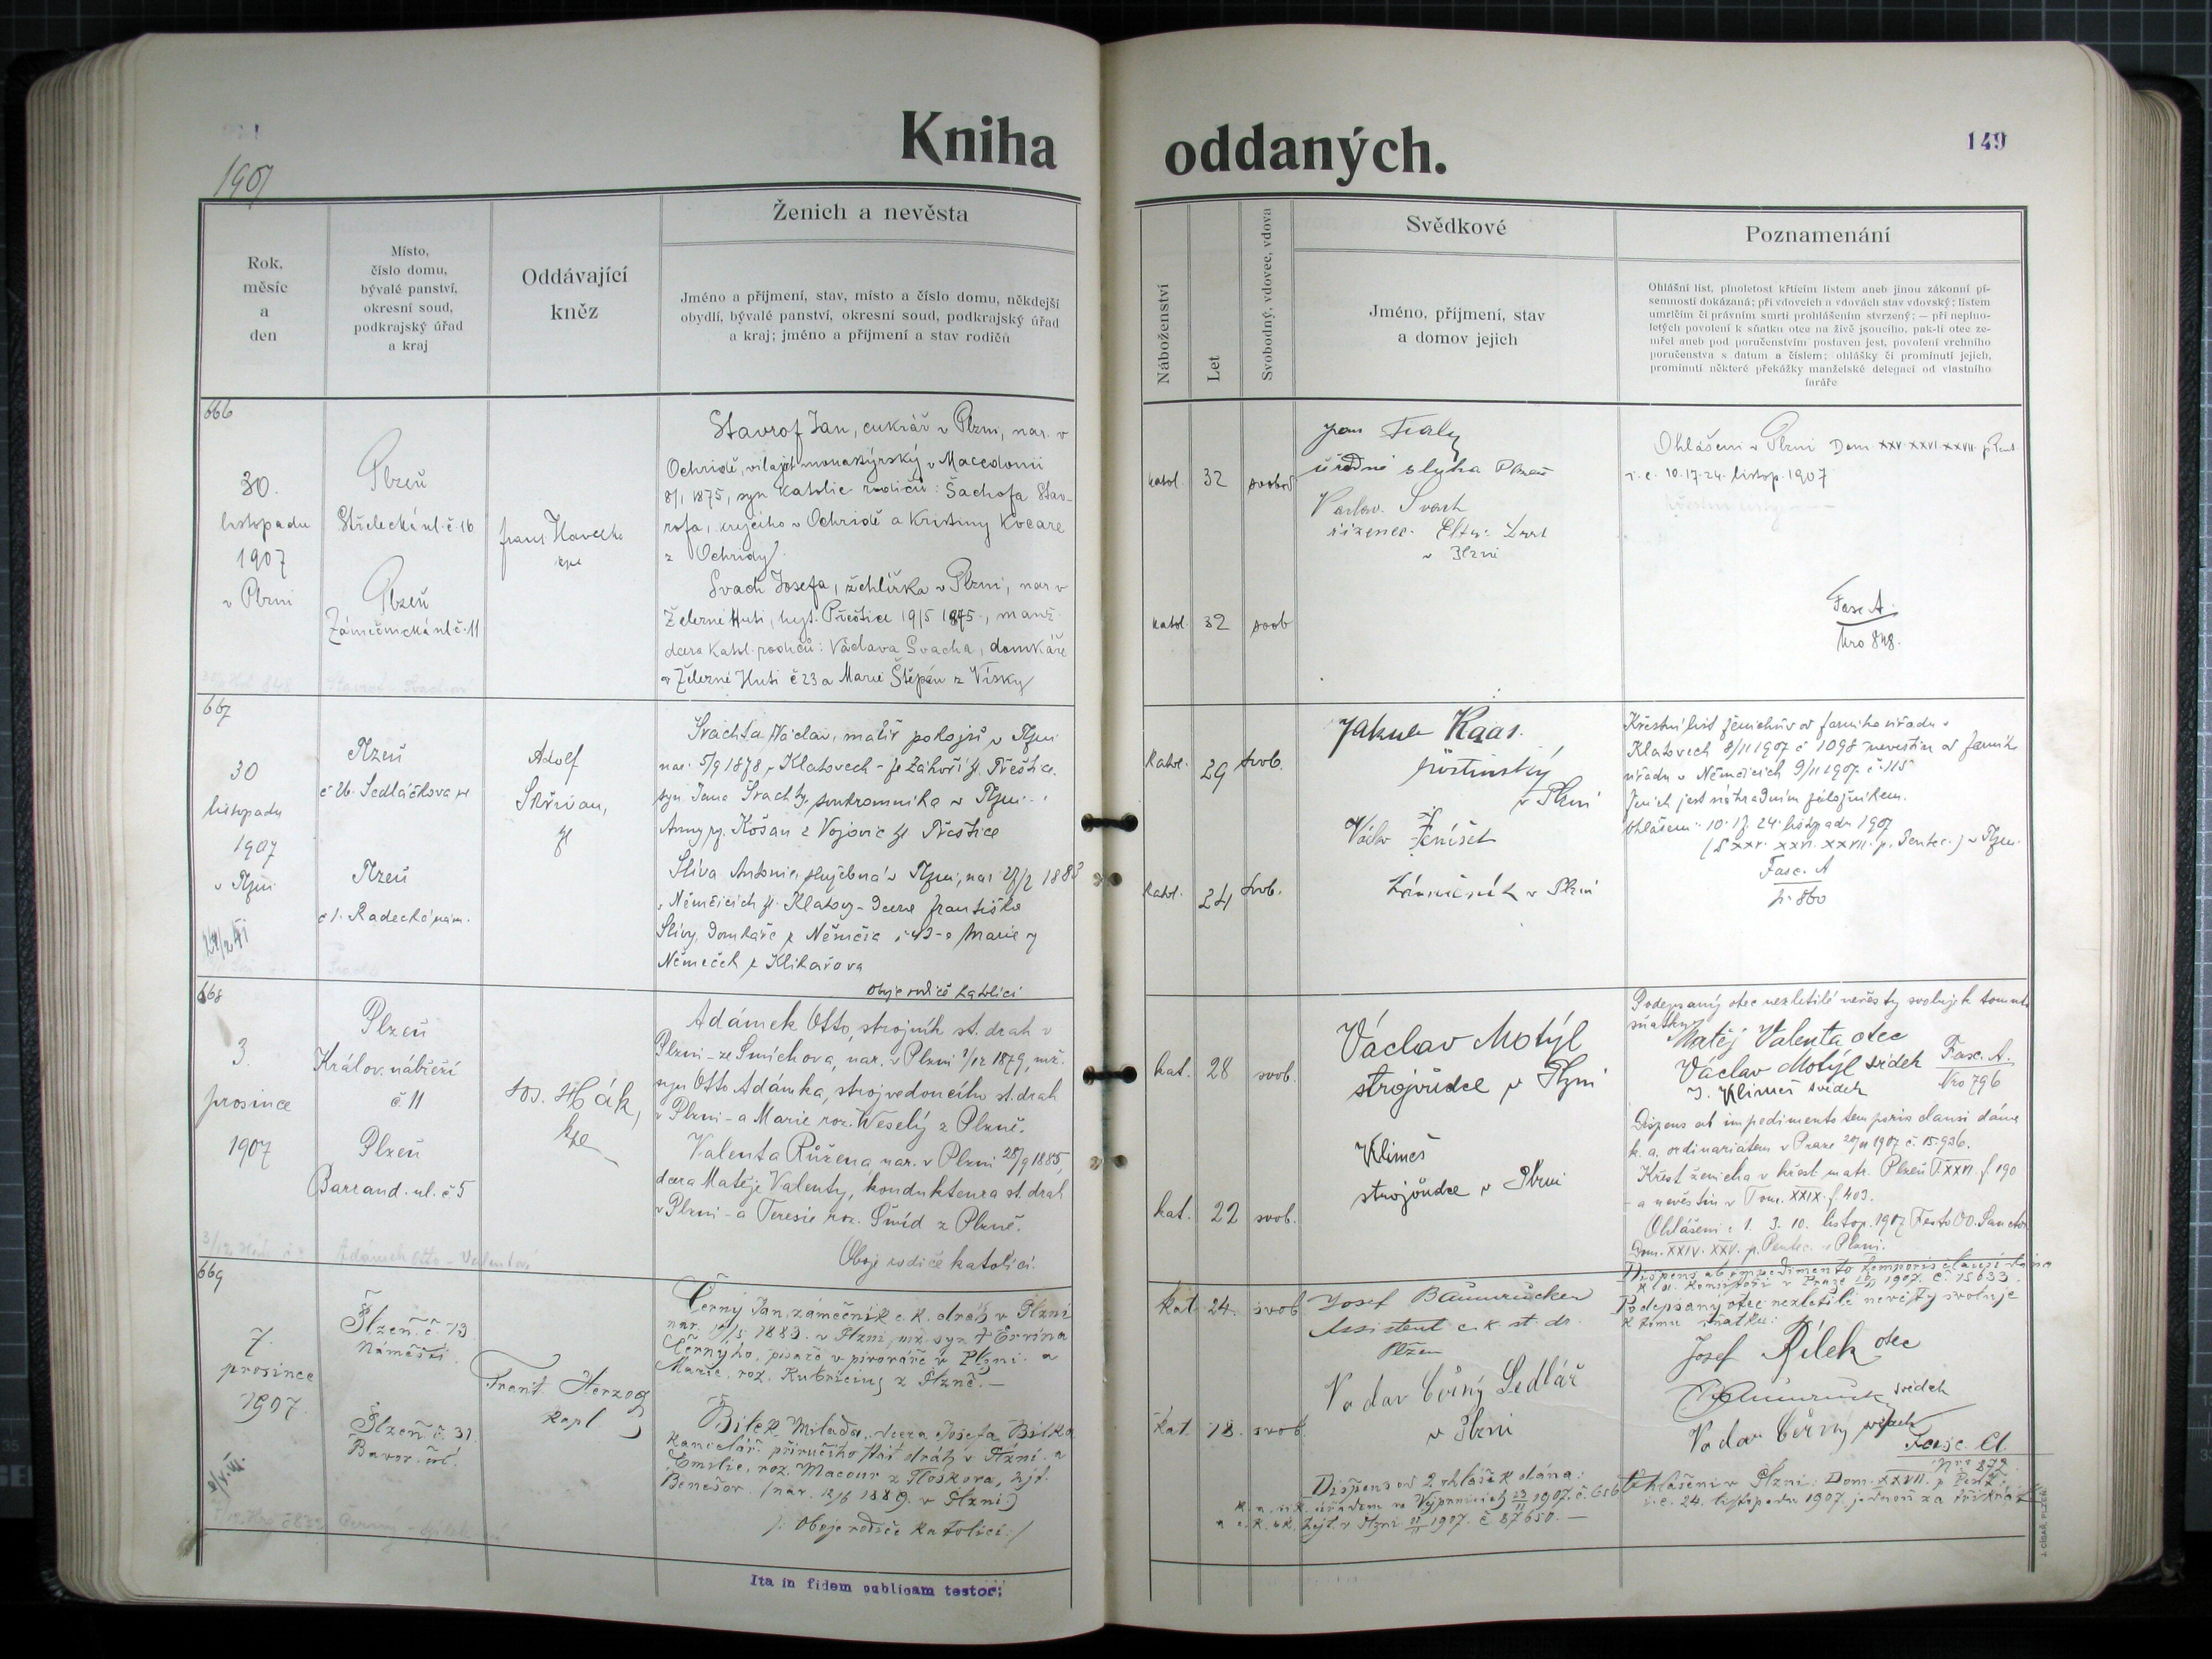 Kniha oddaných.
149
1907
Rok,
měsíc
a
den
Místo,
číslo domu,
bývalé panství,
okresní soud,
podkrajský úřad
a kraj
Oddávající
kněz
Ženich a nevěsta
Jméno a příjmení, stav, místo a číslo domu, někdejší
obydlí, bývalé panství, okresní soud, podkrajský úřad
a kraj; jméno a příjmení a stav rodičů
Náboženství
Let
Svobodný, vdovec, vdova
Svědkové
Jméno, příjmení, stav
a domov jejich
Poznamenání
Ohlášní list, plnoletost křticím listem aneb jinou zákonní pí-
semností dokázaná; při vdovcích a vdovách stav vdovský; listem
umrlčím či právním smrti prohlášením stvrzený; — při neplno-
letých povolení k sňatku otce na živě jsoucího, pak-li otec ze-
mřel aneb pod poručenstvím postaven jest, povolení vrchního
poručenstva s datum a číslem; ohlášky či prominutí jejich,
prominutí některé překážky manželské delegací od vlastního
faráře
666
30.
listopadu
1907
v Plzni
Plzeň
Střelecká ul. č. 16
Plzeň
Zámečnická ul č. 11
Stavrof Jan, cukrář v Plzni, nar. v
Ochridě, vilajet monastýrský v Macedonii
8/1 1875, syn katolic. rodičů: Šachofa Stav-
rofa, krejčího v Ochridě a Kristiny Kocare
z Ochridy.
Svach Josefa, žehlířka v Plzni, nar v
Železné Huti, hejt. Přeštice 19/5 1875, manž.
dcera katol. rodičů: Václava Svacha, domkáře
v Železné Huti č 23 a Marie Štěpán z Vísky
katol. 32 svobod
katol. 32 svob
Jan
úřední sluha Plzeň
Václav Svach
zřízenec
v Plzni
Ohlášeni v Plzni Dom. XXV. XXVI. XXVII. p. Pent.
i. e. 10. 17. 24. listop. 1907
Fasc A.
Nro 848.
667
30
listopadu
1907
v Plzni
Plzeň
č 26. Sedláčkova ul
Plzeň
č 1. Radeckého nám.
Adolf
Skřivan,
Svachta Václav, malíř pokojů v Plzni
nar. 5/9 1878 v Klatovech - ze Záhoří hj. Přeštice.
syn Jana Svachty, soukromníka v Plzni
Anny roz. Košan z Vojovic hj. Přeštice
Slíva Antonie, služebná v Plzni, nar 27/2 1883
v Němčicích hj. Klatovy - dcera Františka
Slívy, domkáře z Němčic č 43 - a Marie r
Němeček z Klikařova
Oboje rodiče katolíci
katol. 29 svob.
katol. 24 svob.
Jakub Kaas.
v Plzni
Václav Jeníšek
zámečník v Plzni
Křestní list ženichův od farního úřadu v
Klatovech 8/11 1907 č 1098 nevěstin od farního
úřadu v Němčicích 9/11 1907. č. 115
Ženich jest náhradním záložníkem.
Ohlášeni: 10. 17. 24. listopadu 1907
(D XXV. XXVI. XXVII. p. Pentec.) v Plzni.
Fasc. A
n. 860
668
3.
prosince
1907
Plzeň
Králov. nábřeží
č. 11
Plzeň
Barrand. ul. č 5
Jos. Hák,
kpl
Adámek Otto, strojník st. drah v
Plzni - ze Smíchova, nar. v Plzni 1/12 1879, mž.
syn Otto Adámka, strojvedoucího st. drah
v Plzni - a Marie roz. Veselý z Plzně.
Valenta Růžena, nar. v Plzni 28/9 1885,
dcera Matěje Valenty, konduktenra st. drah
v Plzni - a Teresie roz. Šmíd z Plzně.
Oboje rodiče katolíci.
kat. 28 svob.
kat. 22 svob.
Václav Motýl
strojvůdce v Plzni
Klimeš
strojvůdce v Plzni
Podepsaný otec nezletilé nevěsty svoluje k tomuto
sňatku.
Matěj Valenta otec
Václav Motýl svědek
J. Klimeš svědek
Fasc. A.
Nro 796
Dispens ab impedimento temporis clausi dáno
k. a. ordinariátem v Praze 20/11 1907 č. 15.936.
Křest ženicha v křest. matr. Plzeň T. XXVI. f. 190
- a nevěstin v Tom. XXIX. f. 403.
Ohlášeni: 1. 3. 10. listop. 1907 Festo OO. Sanctor.
Dom. XXIV. XXV. p. Pentec. v Plzni.
669
7.
prosince
1907.
Plzeň. č. 13
Náměstí.
Plzeň. č. 31
Bavor. ul.
Frant. Herzog
kapl
Černý Jan, zámečník c. k. drah v Plzni
nar. 1883. v Plzni, mž. syn † Ervína
Černyho, písaře v pivováře v Plzni. a
Marie, roz. Kubricius z Plzně. —
Bílek Milada, dcera Josefa Bílka
kancelář. příručího stát. dráh v Plzni. a
Emilie, roz. Macour z Ploskova, hjt.
Benešov. (nar. 12/6 1889. v Plzni)
/: Oboje rodiče katolíci :/
kat. 24. svob
kat. 18. svob.
Josef Baumrucker
Assistent c. k. st. dr.
Plzeň
Václav Černý Sedlář
v Plzni
Dispens od 2 ohlášek dána:
1907. č. 656
hejt. v Plzni 1907. č 87650. —
Dispens ab impedimento temporis clausi dána
k. a. konsistoří v Praze 1907. č. 15633.
Podepsaný otec nezletilé nevěsty svoluje
k tomu sňatku:
Josef Bílek otec
svědek
Václav Černý svědek
Fasc. A.
Nro 872
Ohlášeni v Plzni: Dom. XXVII. p. Pent.
i. e. 24. listopadu 1907. jednou za třikrát
Ita in fidem publicam testor:
J. CÍSAŘ, PLZEŇ.